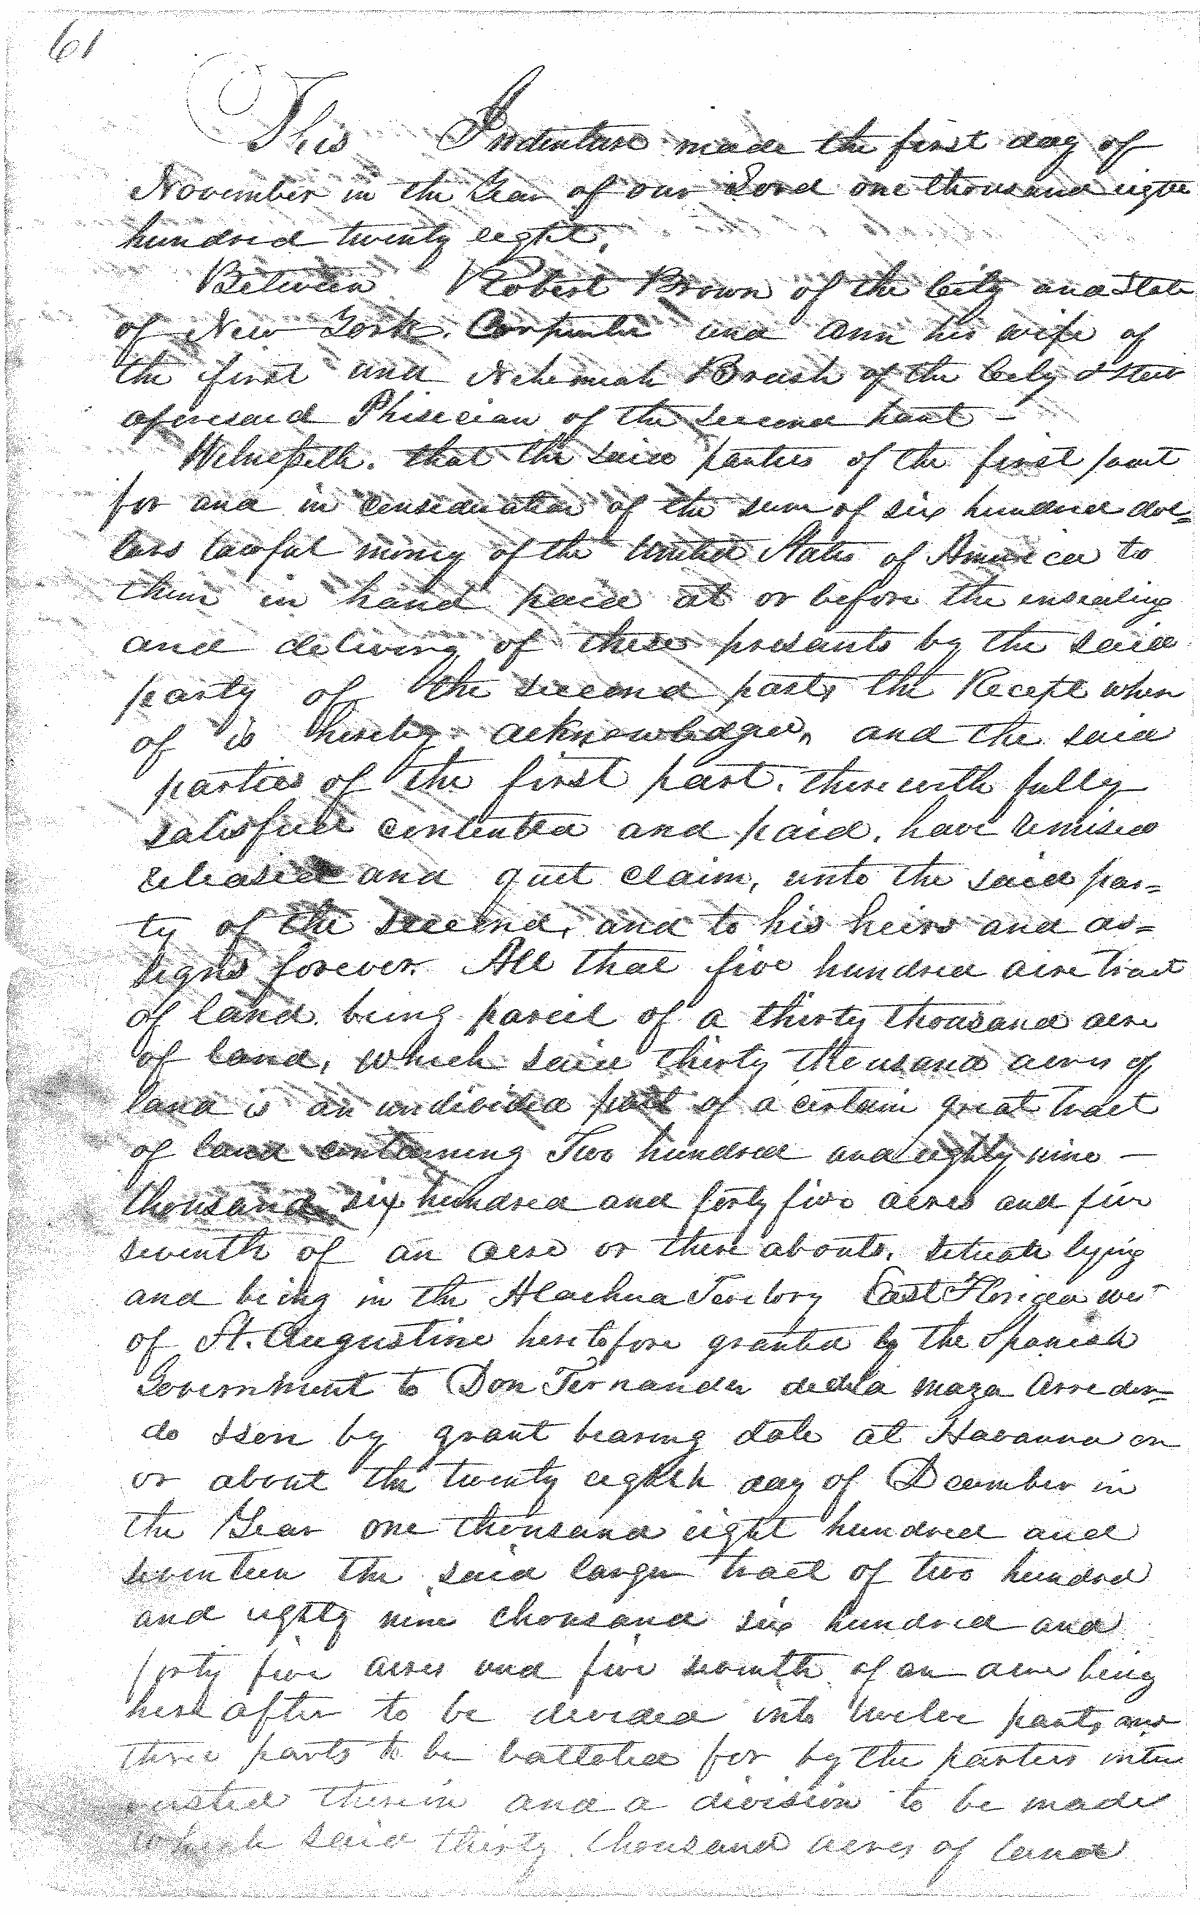 61
This Indenture made the first day of
November in the Year of our Lord one thousand eight
hundred twenty eight,
Between Robert Brown of the City and State
of New York. Carpenter and Ann his wife of
the first and Nehemiah Brush of the City & State
aforesaid Phisician of the second part —
Witnesseth. that the said parties of the first part
for and in consideration of the sum of six hundred dol=
lars lawful money of the United States of America to
them in hand paid at or before the ensealing
and delivery of these presants by the said
party of the second part, the Recept when
of is hereby acknowledged, and the said
parties of the first part. therewith fully
satisfied contented and paid. have remised
released and quit claim, unto the said par=
ty of the second, and to his heirs and as=
signs forever. All that five hundred acre tract
of land. being parcel of a thirty thousand acre
of land, which said thirty thousand acres of
land is an undivided part of a certain great tract
of land containing Two hundred and eighty nine —
thousand six hundred and forty five acres and five
seventh of an acre or there abouts. situate lying
and being in the Alachua Teretory East Florida west
of St. Augustine heretofore granted by the Spanish
Government to Don Fernander dedela maza Arreden=
do Ssen by grant bearing date at Havanna on
or about the twenty eighth day of Dcember in
the Year one thousand eight hundred and
seventeen the said larger tract of two hundred
and eighty nine thousand six hundred and
forty five acres and five seventh of an acre being
here after to be devided into twelve parts, and
three parts to be battoted for by the parties inte
rested therein and a division to be made
which said thirty thousand acres of land